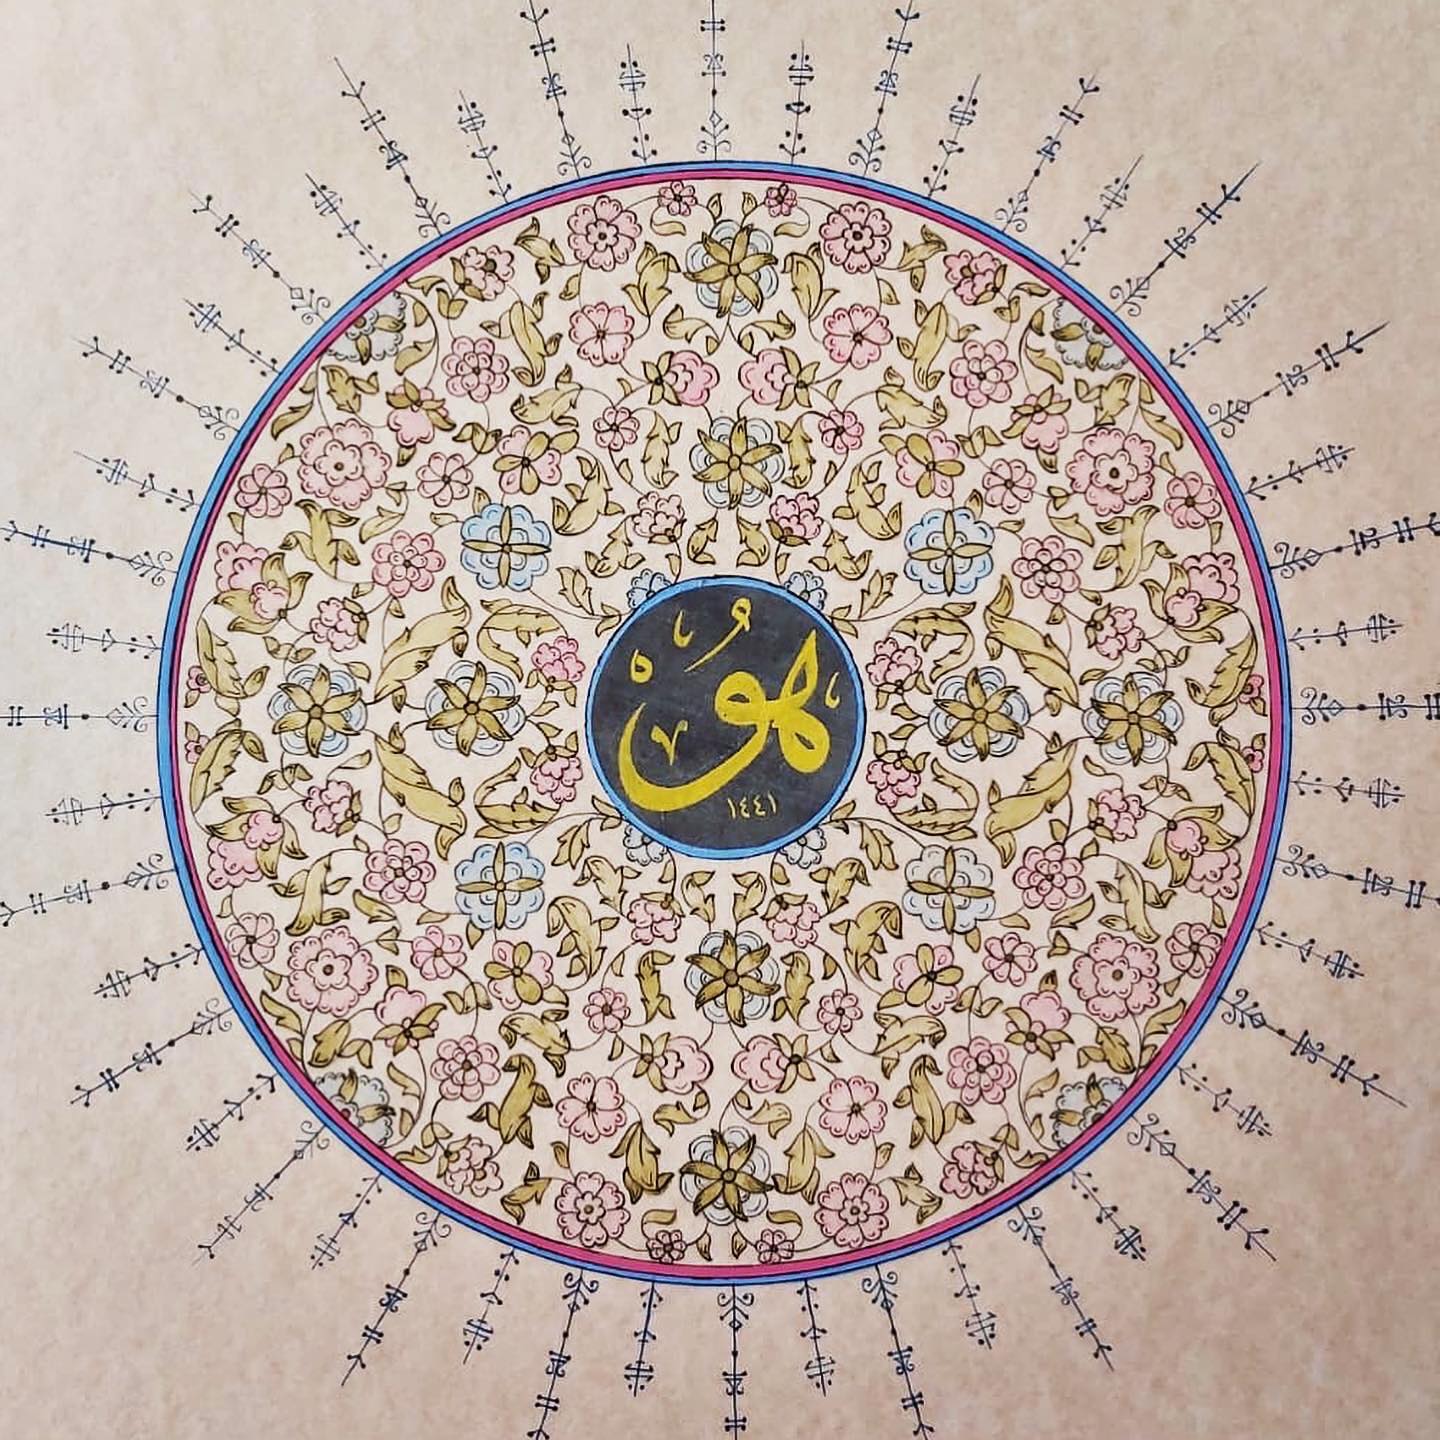 هُوْ
١٤٤١